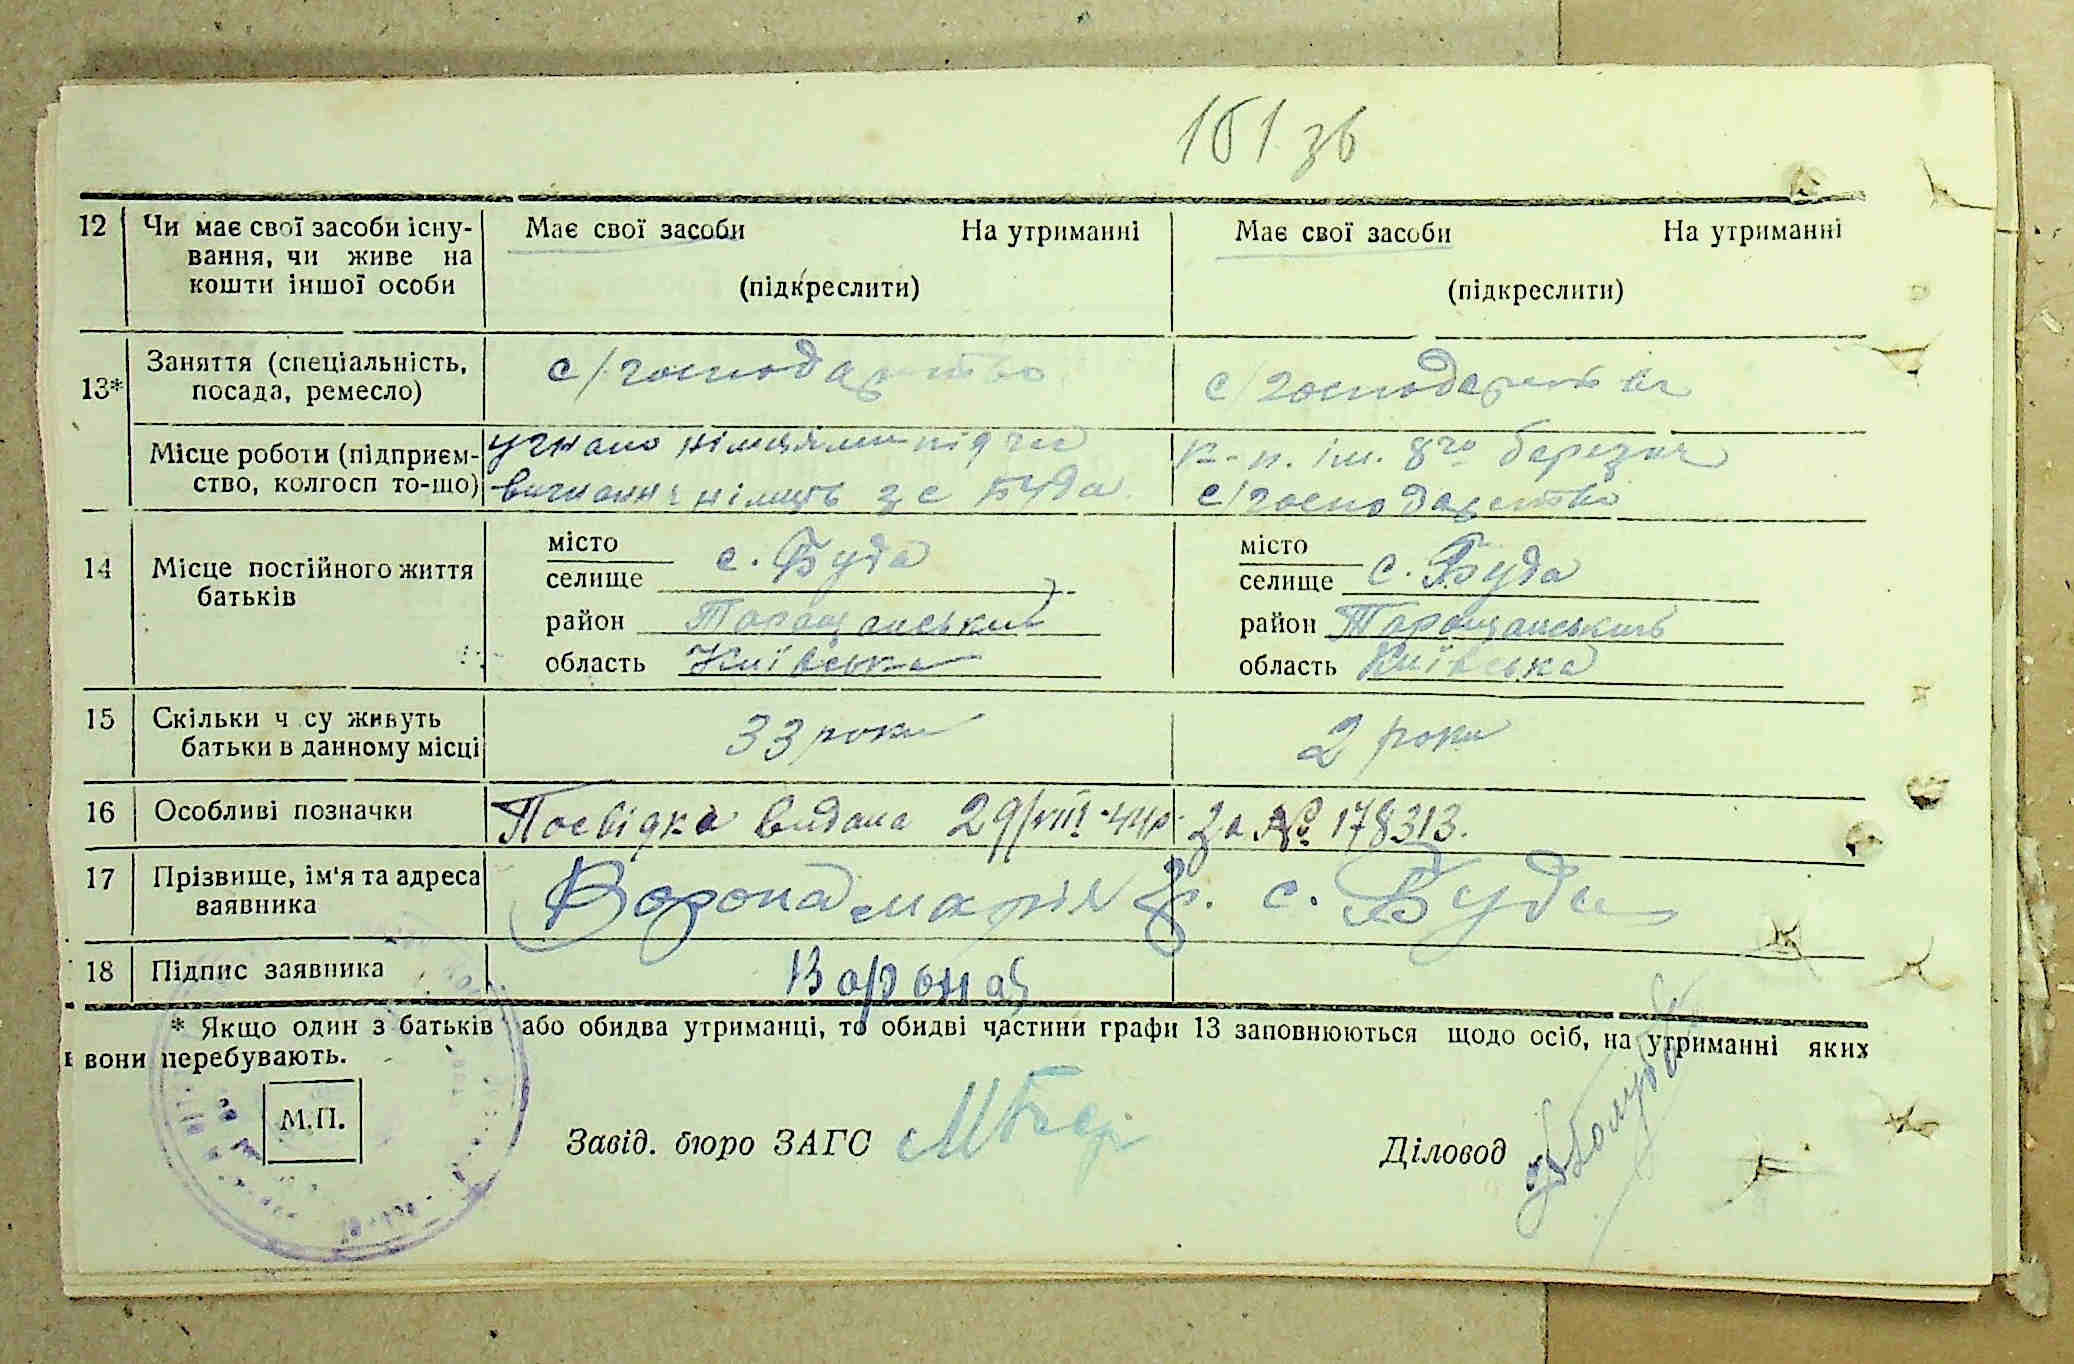 161 зв
12 Чи має свої засоби існу- Має свої засоби На утриманні Має свої засоби На утриманні
вання, чи живе на
кошти іншої особи (підкреслити) (підкреслити)
13* Заняття (спеціальність, с/господарство с/господарства
посада, ремесло)
Місце роботи (підприєм- угнано німцями під час к-п. ім. 8го березня
ство, колгосп то-що) вигнання німців з с Буда с/господарство
14 Місце постійного життя місто с. Буда місто с. Буда
батьків селище селище
район Таращанський район Таращанський
область Київська область Київська
15 Скільки ч су живуть 33 роки 2 роки
батьки в данному місці
16 Особливі позначки Посвідка видана 29/VIII-44р. за № 178313.
17 Прізвище, ім'я та адреса Ворона марія с. Буда
заявника
18 Підпис заявника Ворона
* Якщо один з батьків або обидва утриманці, то обидві частини графи 13 заповнюються щодо осіб, на утриманні яких
вони перебувають.
М.П.
Завід. бюро ЗАГС Діловод